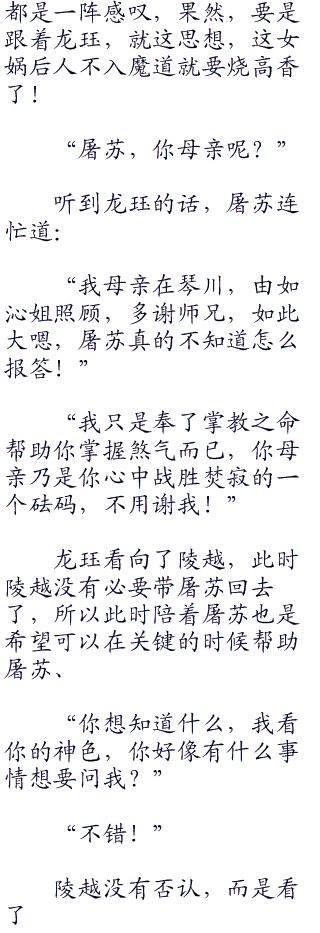 都是一阵感叹，果然，要是
跟着龙珏，就这思想，这女
娲后人不入魔道就要烧高香
了！
“屠苏，你母亲呢？”
听到龙珏的话，屠苏连
忙道：
“我母亲在琴川，由如
沁姐照顾，多谢师兄，如此
大嗯，屠苏真的不知道怎么
报答！”
“我只是奉了掌教之命
帮助你掌握煞气而已，你母
亲乃是你心中战胜焚寂的一
个砝码，不用谢我！”
龙珏看向了陵越，此时
陵越没有必要带屠苏回去
了，所以此时陪着屠苏也是
希望可以在关键的时候帮助
屠苏、
“你想知道什么，我看
你的神色，你好像有什么事
情想要问我？”
“不错！”
陵越没有否认，而是看
了